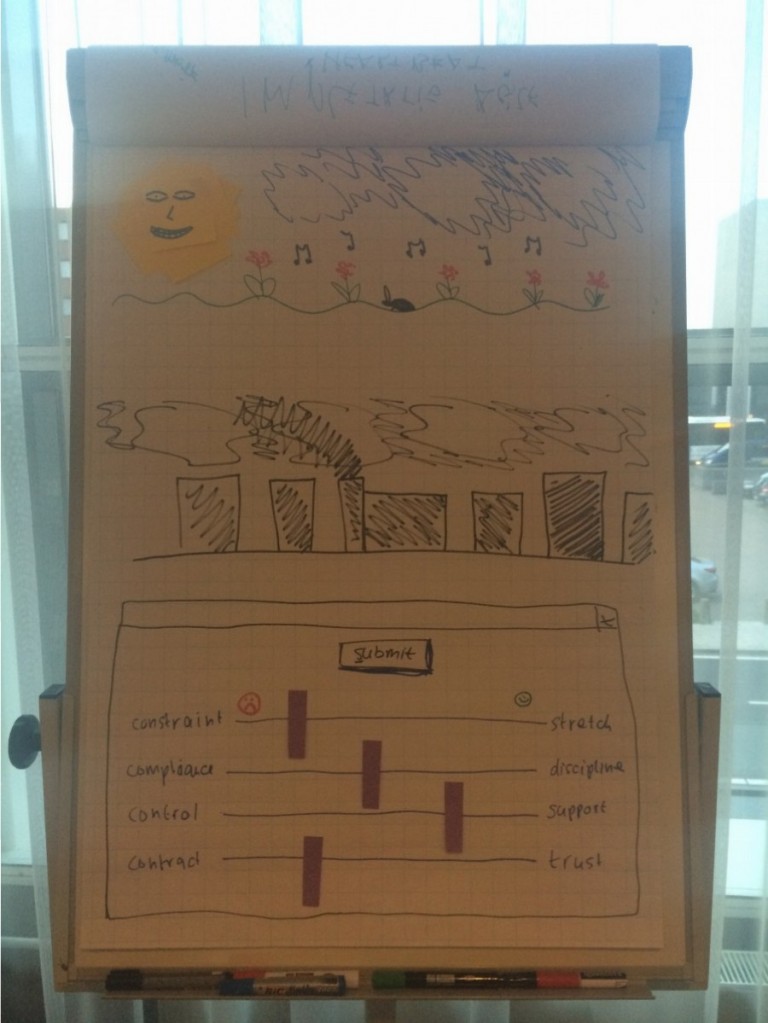 submit
constraint stretch
compliance discipline
control support
contract trust
BIC